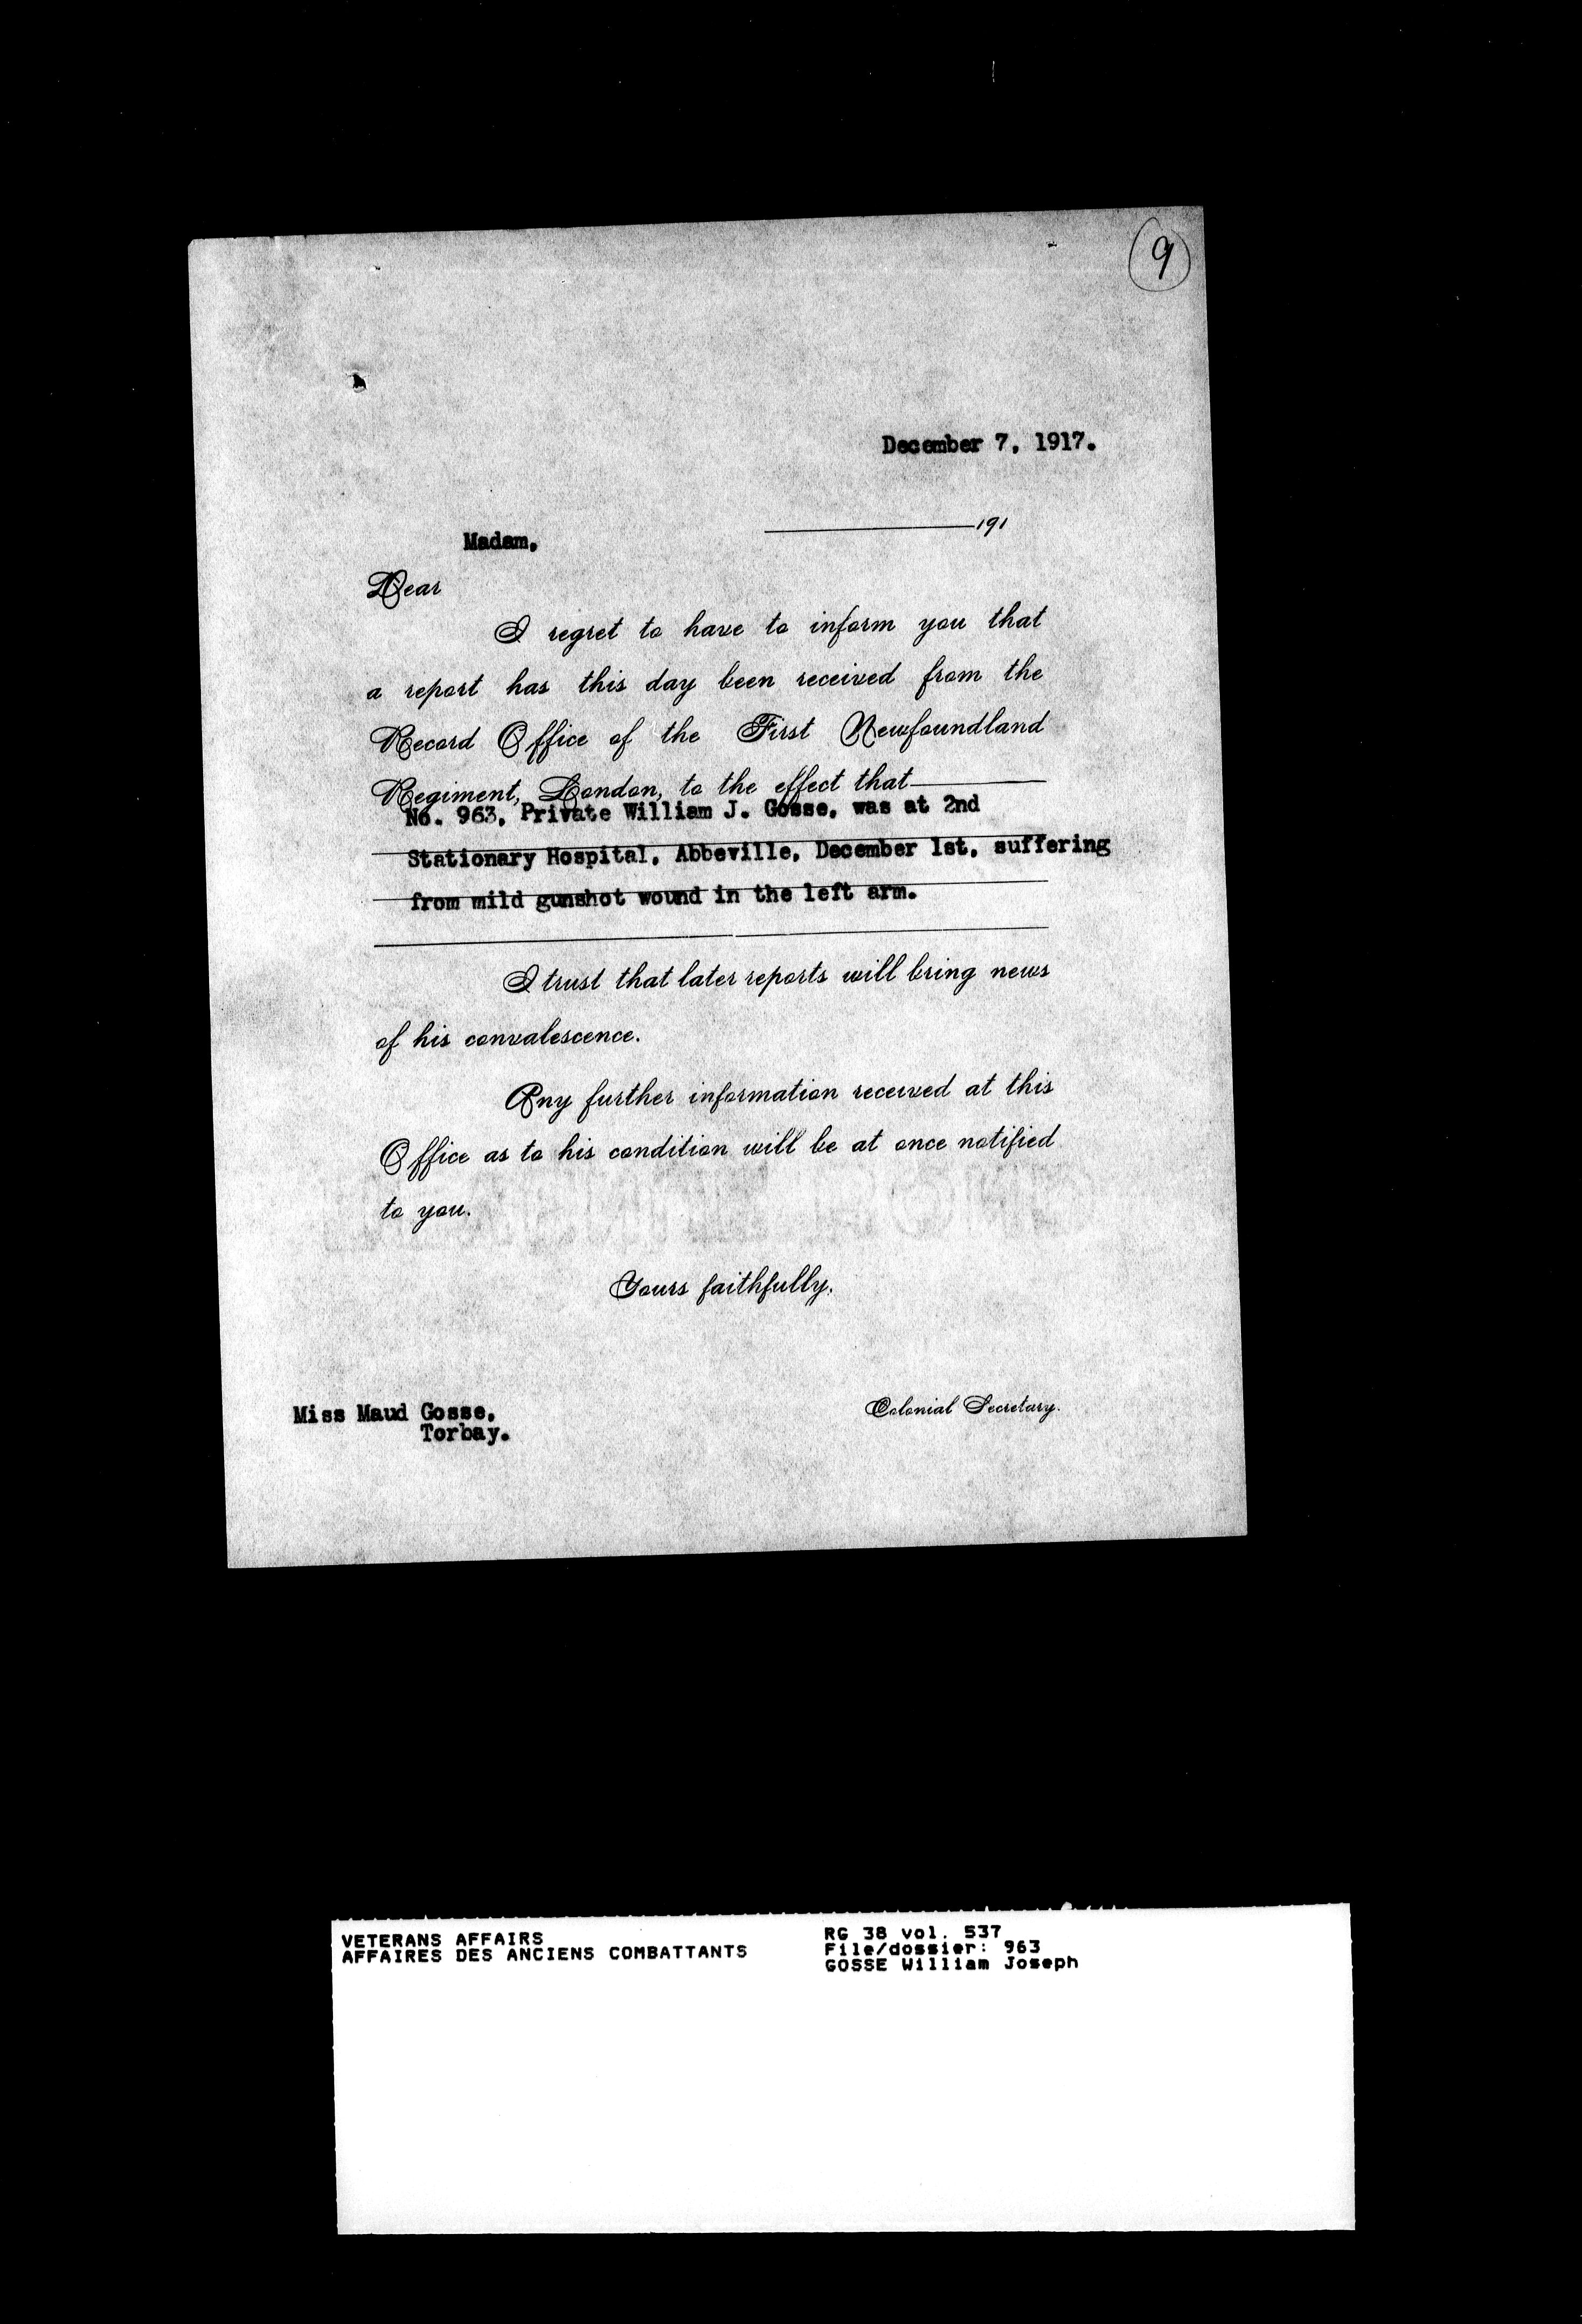 9
December 7, 1917.
191
Madam,
Dear
I regret to have to inform you that
a report has this day been received from the
Record Office of the First Newfoundland
Regiment, London, to the effect that
No. 963, Private William J. Gosse, was at 2nd
Stationary Hospital, Abbeville, December 1st, suffering
from mild gunshot wound in the left arm.
I trust that later reports will bring news
of his convalescence.
Any further information received at this
Office as to his condition will be at once notified
to you.
Yours faithfully,
Colonial Secretary.
Miss Maud Gosse,
Torbay.
VETERANS AFFAIRS
AFFAIRES DES ANCIENS COMBATTANTS
RG 38 vol. 537
File/dossier: 963
GOSSE William Joseph